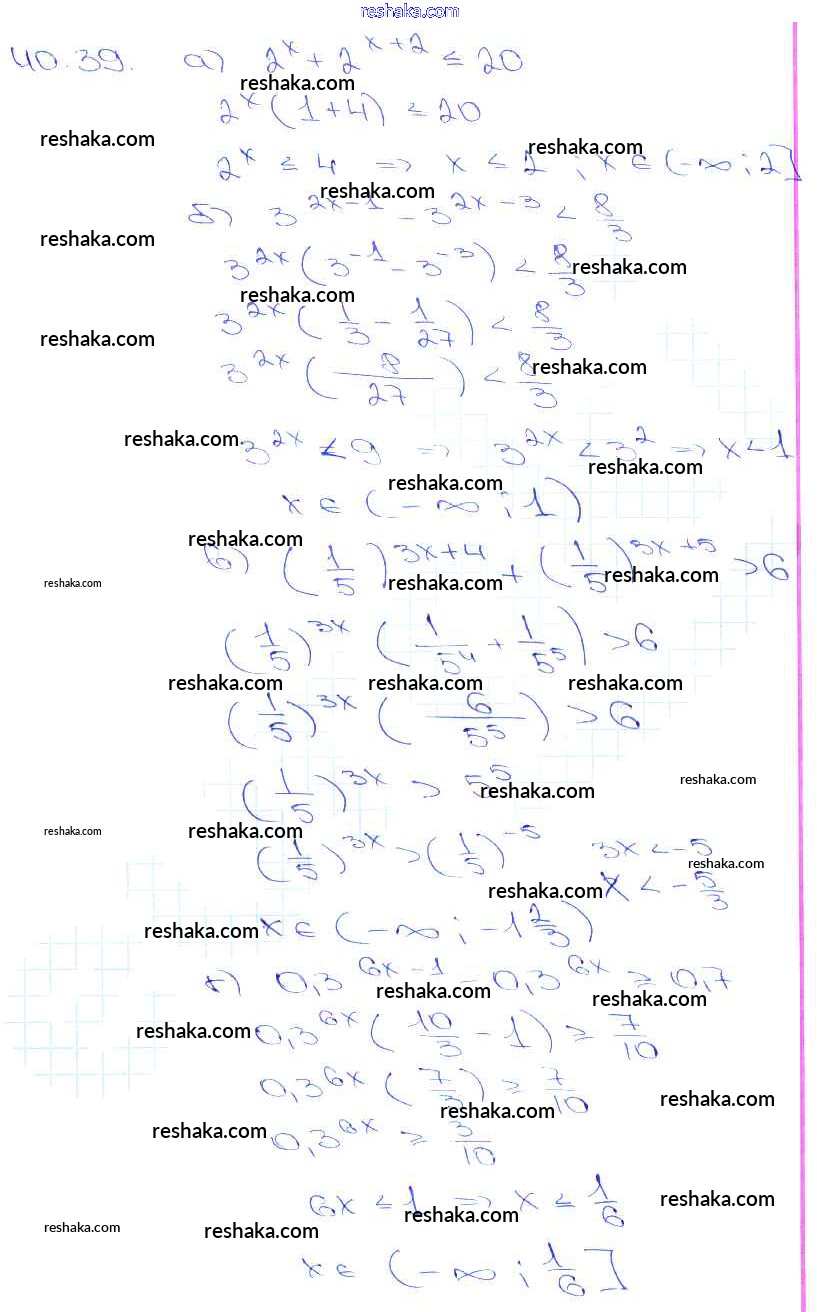 reshaka.com
40.39. а) 2^x + 2^{x+2} ≤ 20
reshaka.com
2^x (1+4) ≤ 20
reshaka.com reshaka.com
2^x ≤ 4 => x ≤ 2 ; x ∈ (-∞ ; 2]
reshaka.com
б) 3^{2x-1} - 3^{2x-3} < 8/3
reshaka.com
3^{2x} (3^{-1} - 3^{-3}) < 8/3
reshaka.com
reshaka.com
3^{2x} (1/3 - 1/27) < 8/3
reshaka.com
3^{2x} (8/27) < 8/3
reshaka.com
reshaka.com
3^{2x} < 9 => 3^{2x} < 3^2 => x < 1
reshaka.com
reshaka.com
x ∈ (-∞ ; 1)
reshaka.com
в) (1/5)^{3x+4} + (1/5)^{3x+5} > 6
reshaka.com reshaka.com reshaka.com
(1/5)^{3x} (1/5^4 + 1/5^5) > 6
reshaka.com reshaka.com reshaka.com
(1/5)^{3x} (6/5^5) > 6
(1/5)^{3x} > 5^5
reshaka.com reshaka.com
reshaka.com reshaka.com
(1/5)^{3x} > (1/5)^{-5} 3x < -5
reshaka.com
reshaka.com x < -5/3
reshaka.com x ∈ (-∞ ; -1 2/3)
г) 0,3^{6x-1} - 0,3^{6x} ≥ 0,7
reshaka.com reshaka.com
reshaka.com 0,3^{6x} (10/3 - 1) ≥ 7/10
0,3^{6x} (7/3) ≥ 7/10
reshaka.com reshaka.com
reshaka.com 0,3^{6x} ≥ 3/10
6x ≤ 1 => x ≤ 1/6
reshaka.com reshaka.com
reshaka.com reshaka.com
x ∈ (-∞ ; 1/6]